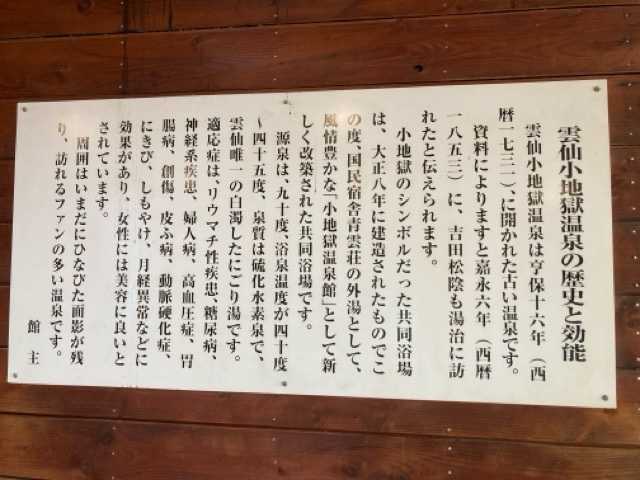 雲仙小地獄温泉の歴史と効能
雲仙小地獄温泉は享保十六年（西
暦一七三一）、に開かれた古い温泉です。
資料によりますと嘉永六年（西暦
一八五三）に、吉田松陰も湯治に訪
れたと伝えられます。
小地獄のシンボルだった共同浴場
は、大正八年に建造されたものでこ
の度、国民宿舎青雲荘の外湯として、
風情豊かな「小地獄温泉館」として新
しく改築された共同浴場です。
源泉は、九十度、浴泉温度が四十度
〜四十五度、泉質は硫化水素泉で、
雲仙唯一の白濁したにごり湯です。
適応症は、リウマチ性疾患、糖尿病、
神経系疾患、婦人病、高血圧症、胃
腸病、創傷、皮ふ病、動脈硬化症、
にきび、しもやけ、月経異常などに
効果があり、女性には美容に良いと
されています。
周囲はいまだにひなびた面影が残
り、訪れるファンの多い温泉です。
館主